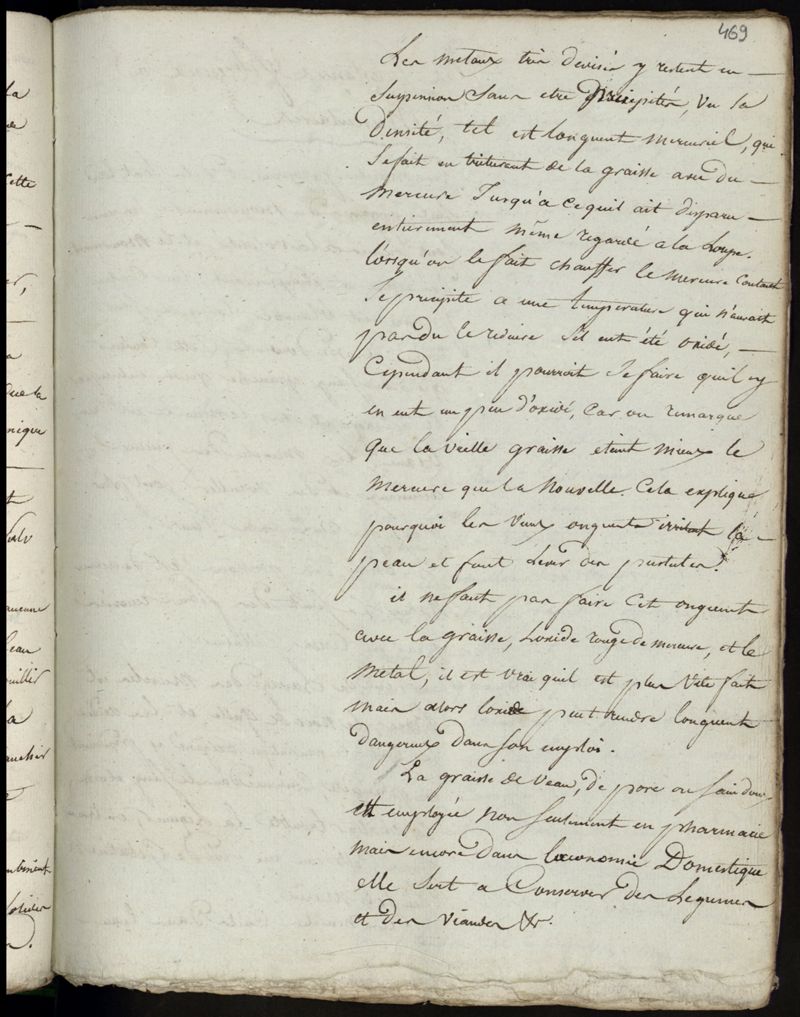 469
Les metaux très divisés y restent en —
suspension sans etre précipités, vu sa
Densité, tel est longuent mercuriel, qui
se fait en triturant de la graisse avec du —
mercure Jusqu'a cequil ait disparu —
entierement même regardé a la Loupe.
lorsqu'on le fait chauffer le mercure Coulant
Se précipite a une température qui n'auroit
pas du le réduire S'il eut été oxidé, —
Cependant il pourroit se faire quil y
en eut un peu d'oxidé, Car on remarque
que la vielle graisse eteint mieux le
mercure que la Nouvelle. Cela explique
pourquoi les vieux onguents irritent la —
peau et font lever des pustules.
il ne faut pas faire Cet onguent
avec la graisse, Loxide rouge de mercure, et le
Metal, il est vrai quil est plus vite fait
mais alors loxide peut rendre longuent
dangereux dans son emploi.
La graisse de Veau, de porc ou saindoux
est employée non seulement en pharmacie
mais encore dans lœconomie Domestique
elle Sert a Conserver des Legumes
et des viandes &c.
la
Cette
—
la
que la
nique
aucune
l'eau
ouillir
la